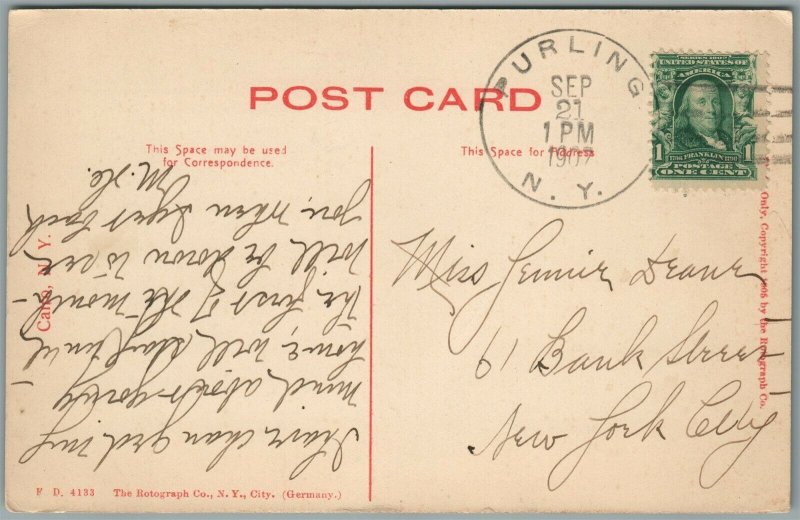 POST CARD
PURLING
SEP
21
1 PM
1907
N. Y.
SERIES 1902
UNITED STATES OF
AMERICA
1 FRANKLIN 1
POSTAGE
ONE CENT
This Space may be used
for Correspondence.
This Space for Address
I have changed my
mind about going
home, will stay until
the first of the month –
will be down to see
you, when I get back
M. He.
Miss Jennie Deane
61 Bank Street
New York City
Cairo, N. Y.
Only, Copyright 1905 by the Rotograph Co.
F D. 4133 The Rotograph Co., N. Y., City. (Germany.)